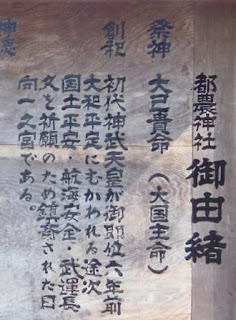 都農神社 御由緒
祭神 大己貴命(大国主命)
創祀 初代神武天皇が御即位六年前
大和平定にむかわれる途次
国土平安・航海安全・武運長
久を祈願のため鎮斎された日
向一之宮である。
神徳